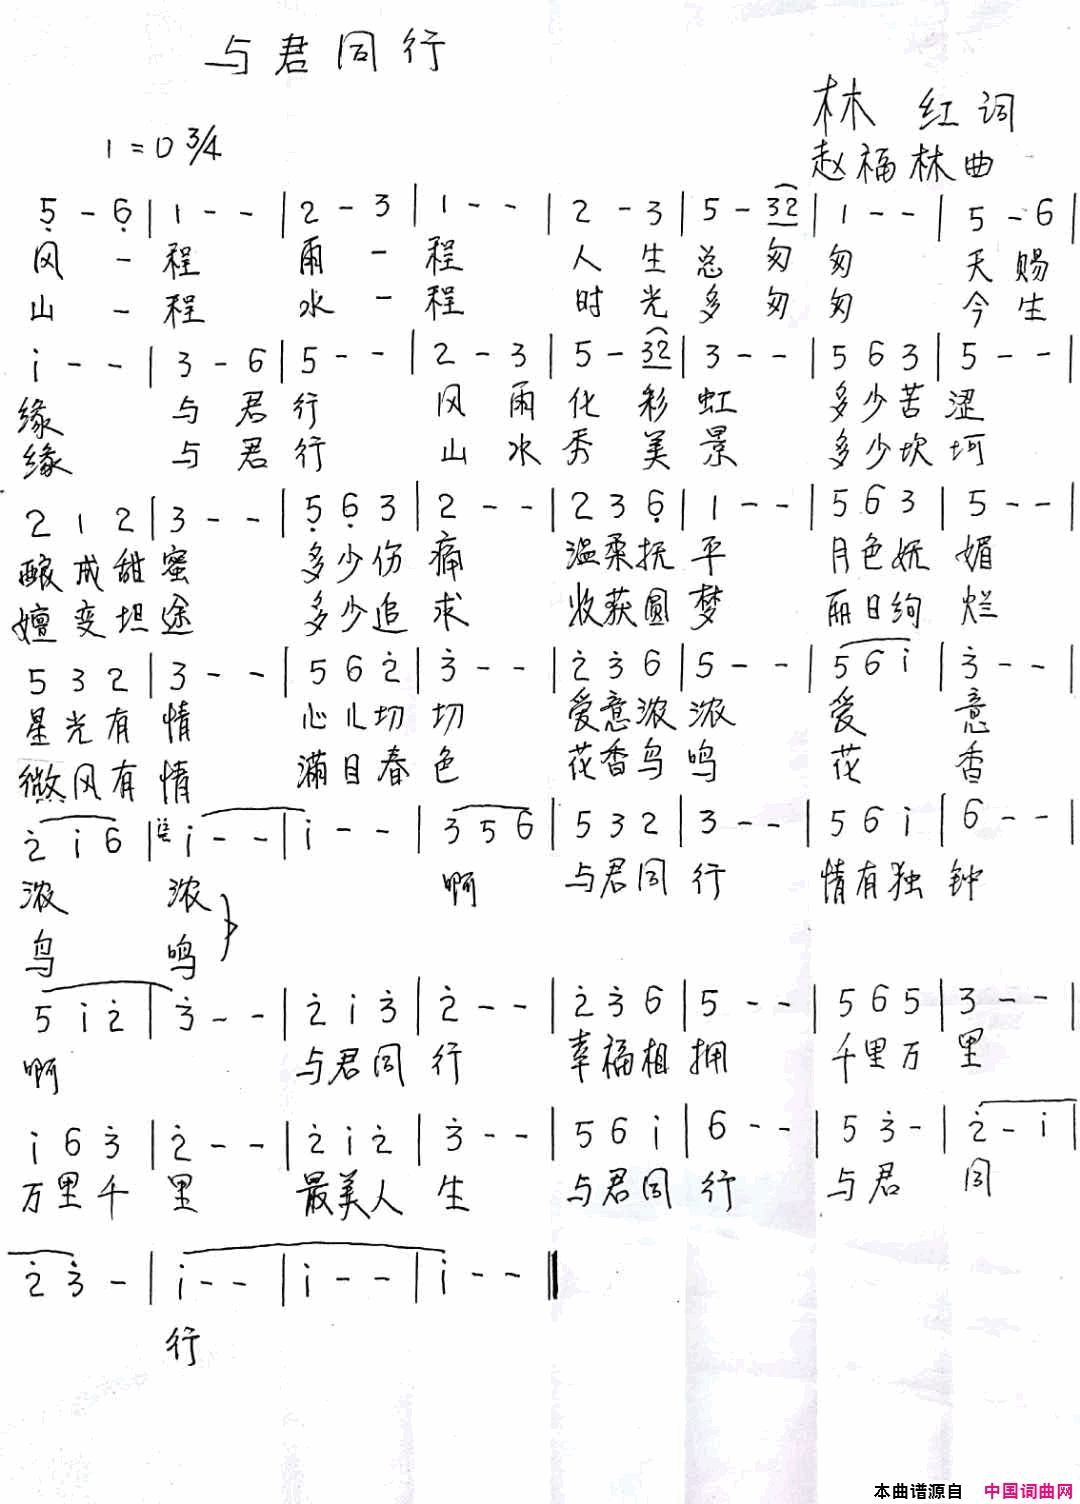 与君同行
林 红 词
1=D 3/4
赵福林曲
5̣ - 6̣ | 1 - - | 2 - 3 | 1 - - | 2 - 3 | 5 - 32 | 1 - - | 5 - 6 |
风 一 程 雨 一 程 人 生 总 匆 匆 天 赐
山 一 程 水 一 程 时 光 多 匆 匆 今 生
i - - | 3 - 6 | 5 - - | 2 - 3 | 5 - 32 | 3 - - | 5 6 3 | 5 - - |
缘 与 君 行 风 雨 化 彩 虹 多少苦 涩
缘 与 君 行 山 水 秀 美 景 多少坎 坷
2 1 2 | 3 - - | 5̣ 6̣ 3 | 2 - - | 2 3 6̣ | 1 - - | 5 6 3 | 5 - - |
酿 成 甜 蜜 多少伤 痛 温柔抚 平 月色妩 媚
嬗 变 坦 途 多少追 求 收获圆 梦 丽日绚 烂
5 3 2 | 3 - - | 5 6 2̇ | 3̇ - - | 2̇ 3̇ 6 | 5 - - | 5 6 i | 3̇ - - |
星 光 有 情 心儿切 切 爱意浓 浓 爱 意
微 风 有 情 满目春 色 花香鸟 鸣 花 香
2̇ i 6 | i - - | i - - | 3 5 6 | 5 3 2 | 3 - - | 5 6 i | 6 - - |
浓 浓 啊 与君同 行 情有独 钟
鸟 鸣
5 i 2̇ | 3̇ - - | 2̇ i 3̇ | 2̇ - - | 2̇ 3̇ 6 | 5 - - | 5 6 5 | 3 - - |
啊 与君同 行 幸福相 拥 千里万 里
i 6 3̇ | 2̇ - - | 2̇ i 2̇ | 3̇ - - | 5 6 i | 6 - - | 5 3̇ - | 2̇ - i |
万里千 里 最美人 生 与君同 行 与 君 同
2̇ 3̇ - | i - - | i - - | i - - ‖
行
本曲谱源自 中国词曲网